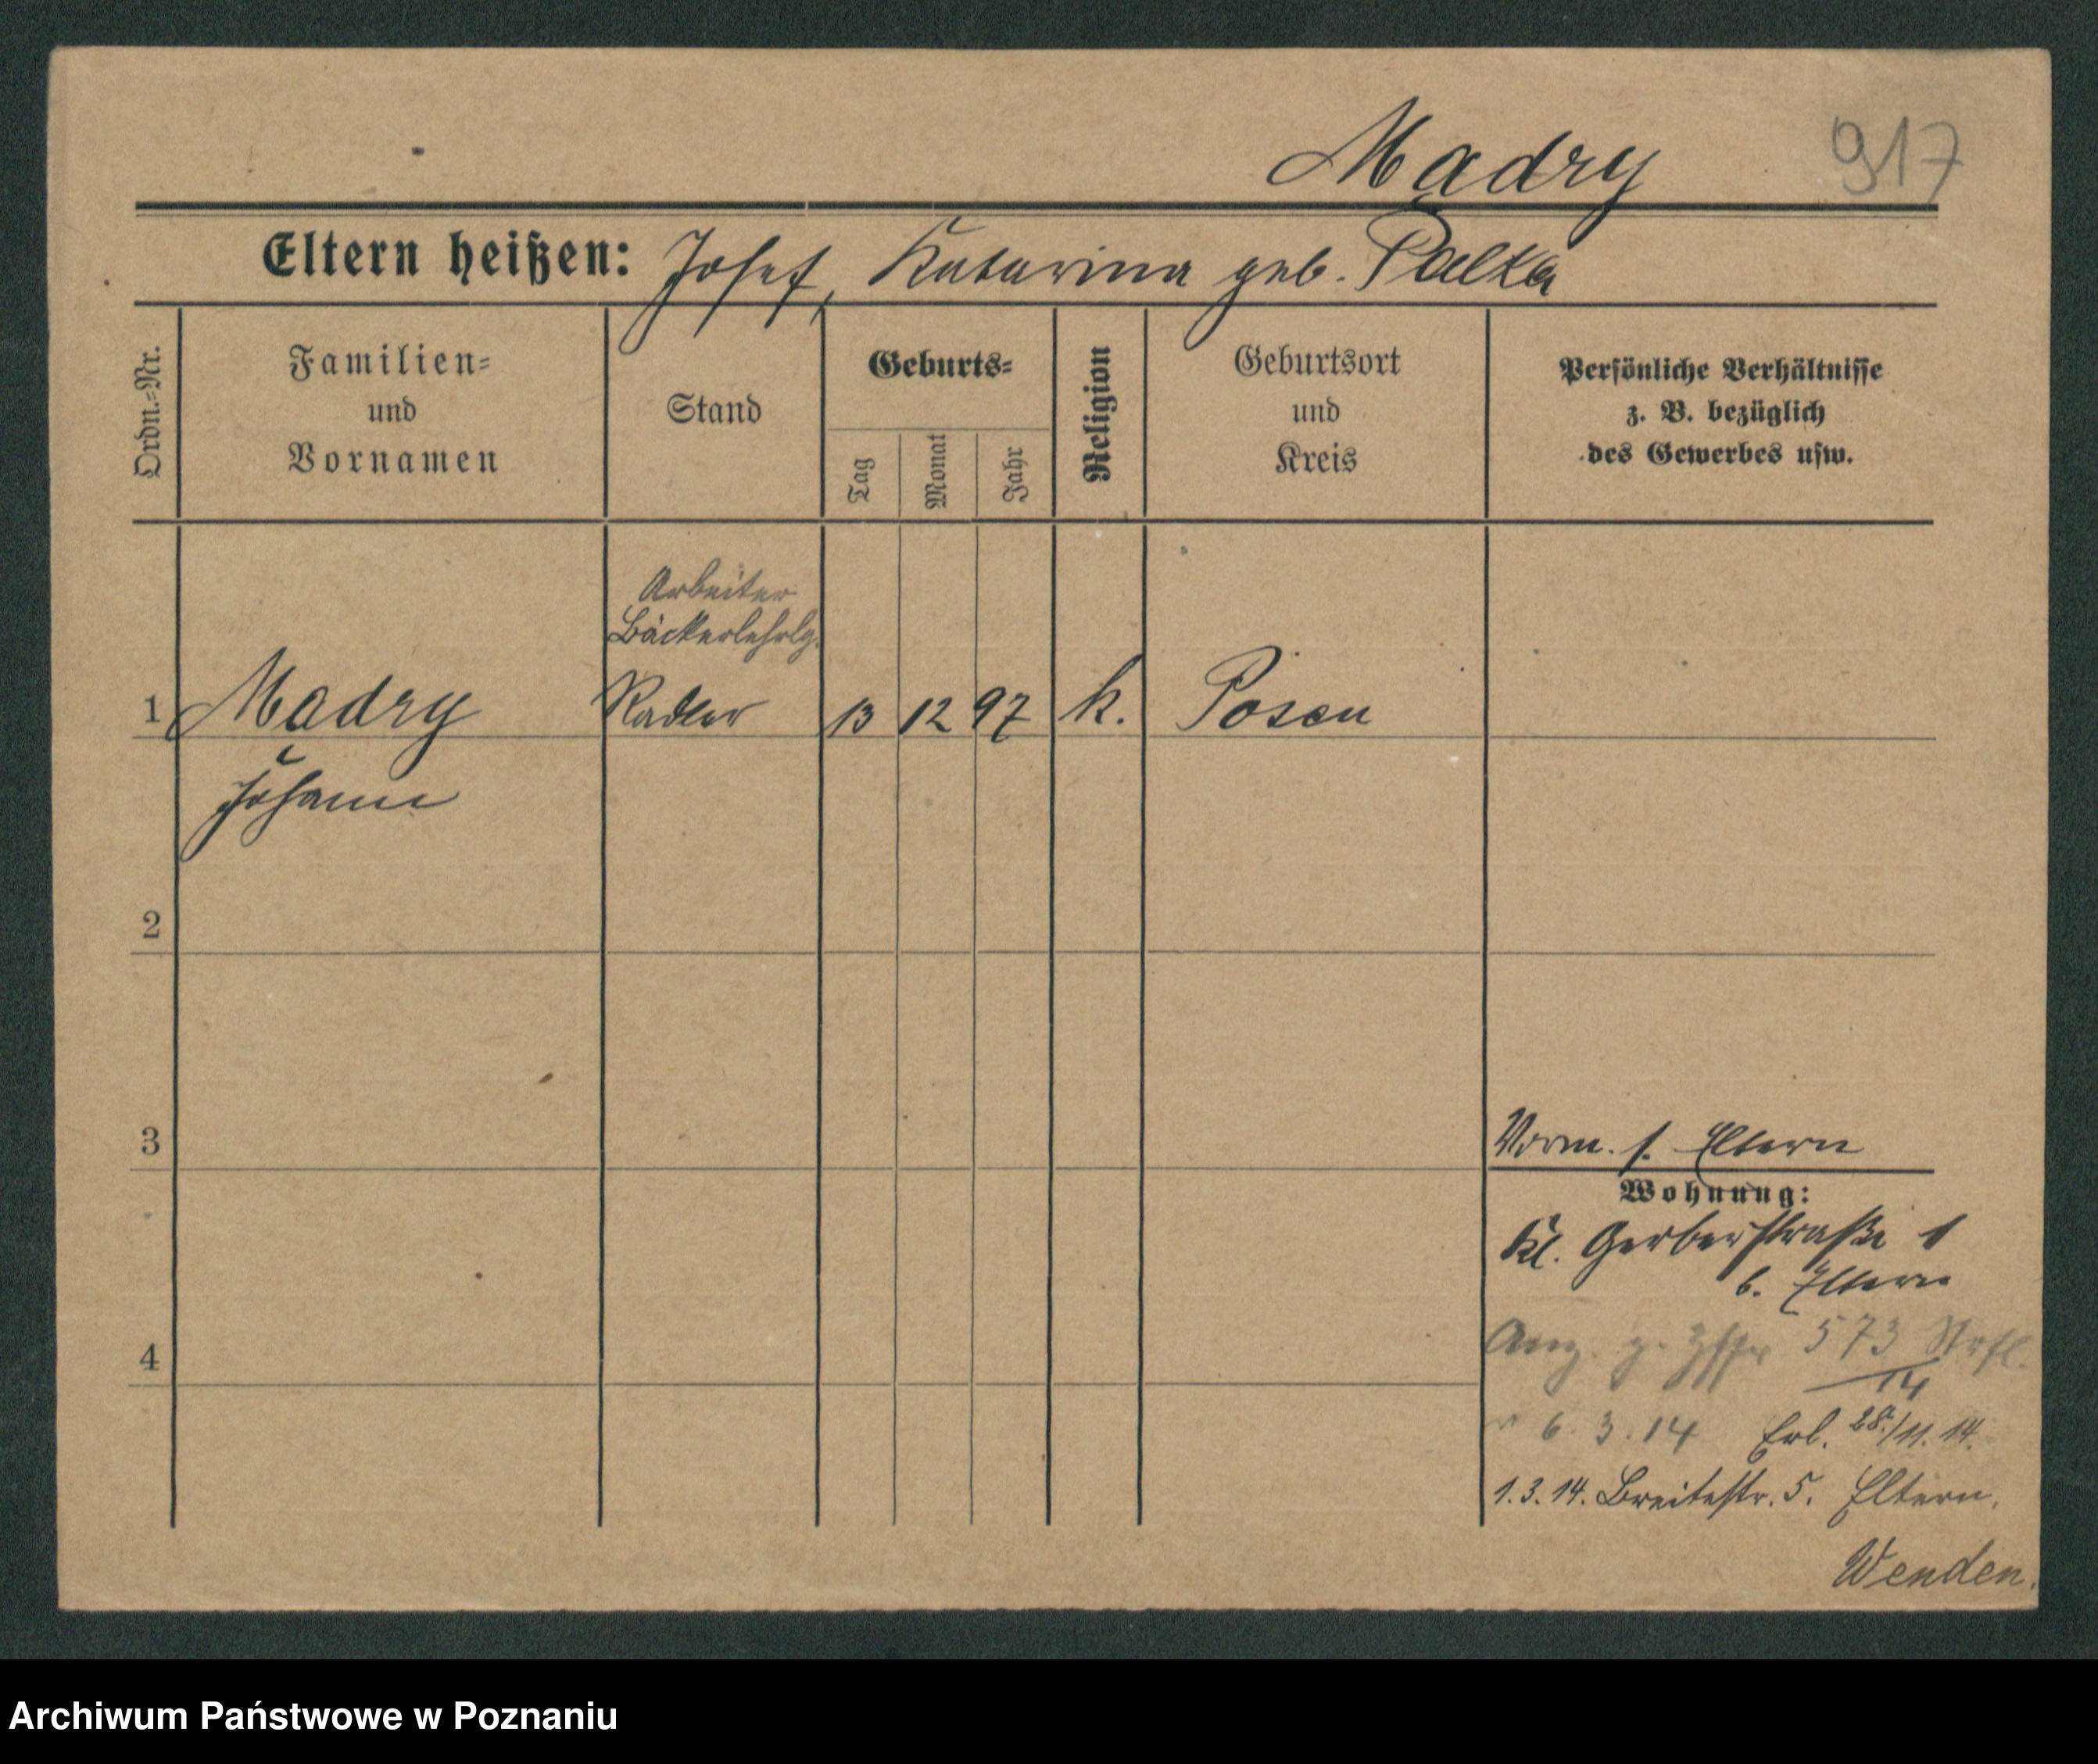 Madry 917
Eltern heißen: Josef, Katarina geb. Palka
Ordn.-Nr.
Familien-
und
Vornamen
Stand
Geburts-
Tag
Monat
Jahr
Religion
Geburtsort
und
Kreis
Persönliche Verhältnisse
z. B. bezüglich
des Gewerbes usw.
Arbeiter
Bäckerlehrlg.
1 Madry Radler 13 12 97 k. Posen
Johann
2
3
Vorm. s. Eltern
Wohnung:
Kl. Gerberstraße 1
b. Eltern
4
Anz. z. 573
14
6.3.14 Erl. 28./11.14.
1.3.14. Breitestr. 5. Eltern.
Wenden.
Archiwum Państwowe w Poznaniu